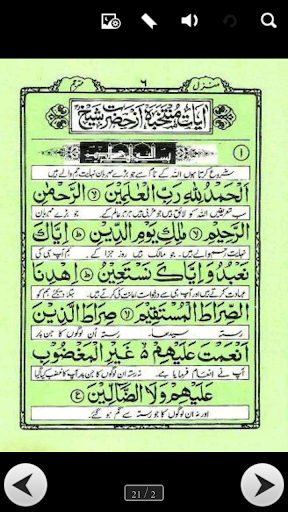 منزل ۶ مترجم
آیات منتخبہ از حضرت شیخ رح
۱
بسم الله الرحمن الرحيم
شروع کرتا ہوں اللہ کے نام سے جو بڑے مہربان نہایت رحم والے ہیں
اَلْحَمْدُ لِلّٰهِ رَبِّ الْعٰلَمِيْنَ ۙ الرَّحْمٰنِ
سب تعریفیں اللہ کو لائق ہیں جو مربی ہیں ہر ہر عالم کے۔ جو بڑے مہربان
الرَّحِيْمِ ۙ مٰلِكِ يَوْمِ الدِّيْنِ ؕ اِيَّاكَ
نہایت رحم والے ہیں۔ جو مالک ہیں روز جزا کے۔ ہم آپ ہی کی
نَعْبُدُ وَ اِيَّاكَ نَسْتَعِيْنُ ؕ اِهْدِنَا
عبادت کرتے ہیں اور آپ ہی سے درخواست اعانت کی کرتے ہیں۔ بتلا دیجئے ہم کو
الصِّرَاطَ الْمُسْتَقِيْمَ ۙ صِرَاطَ الَّذِيْنَ
رستہ سیدھا۔ رستہ ان لوگوں کا جن پر
اَنْعَمْتَ عَلَيْهِمْ ۙ غَيْرِ الْمَغْضُوْبِ
آپ نے انعام فرمایا ہے۔ نہ رستہ ان لوگوں کا جن پر آپ کا غضب کیا گیا
عَلَيْهِمْ وَلَا الضَّآلِّيْنَ
اور نہ ان لوگوں کا جو رستہ سے گم ہو گئے۔
21 / 2